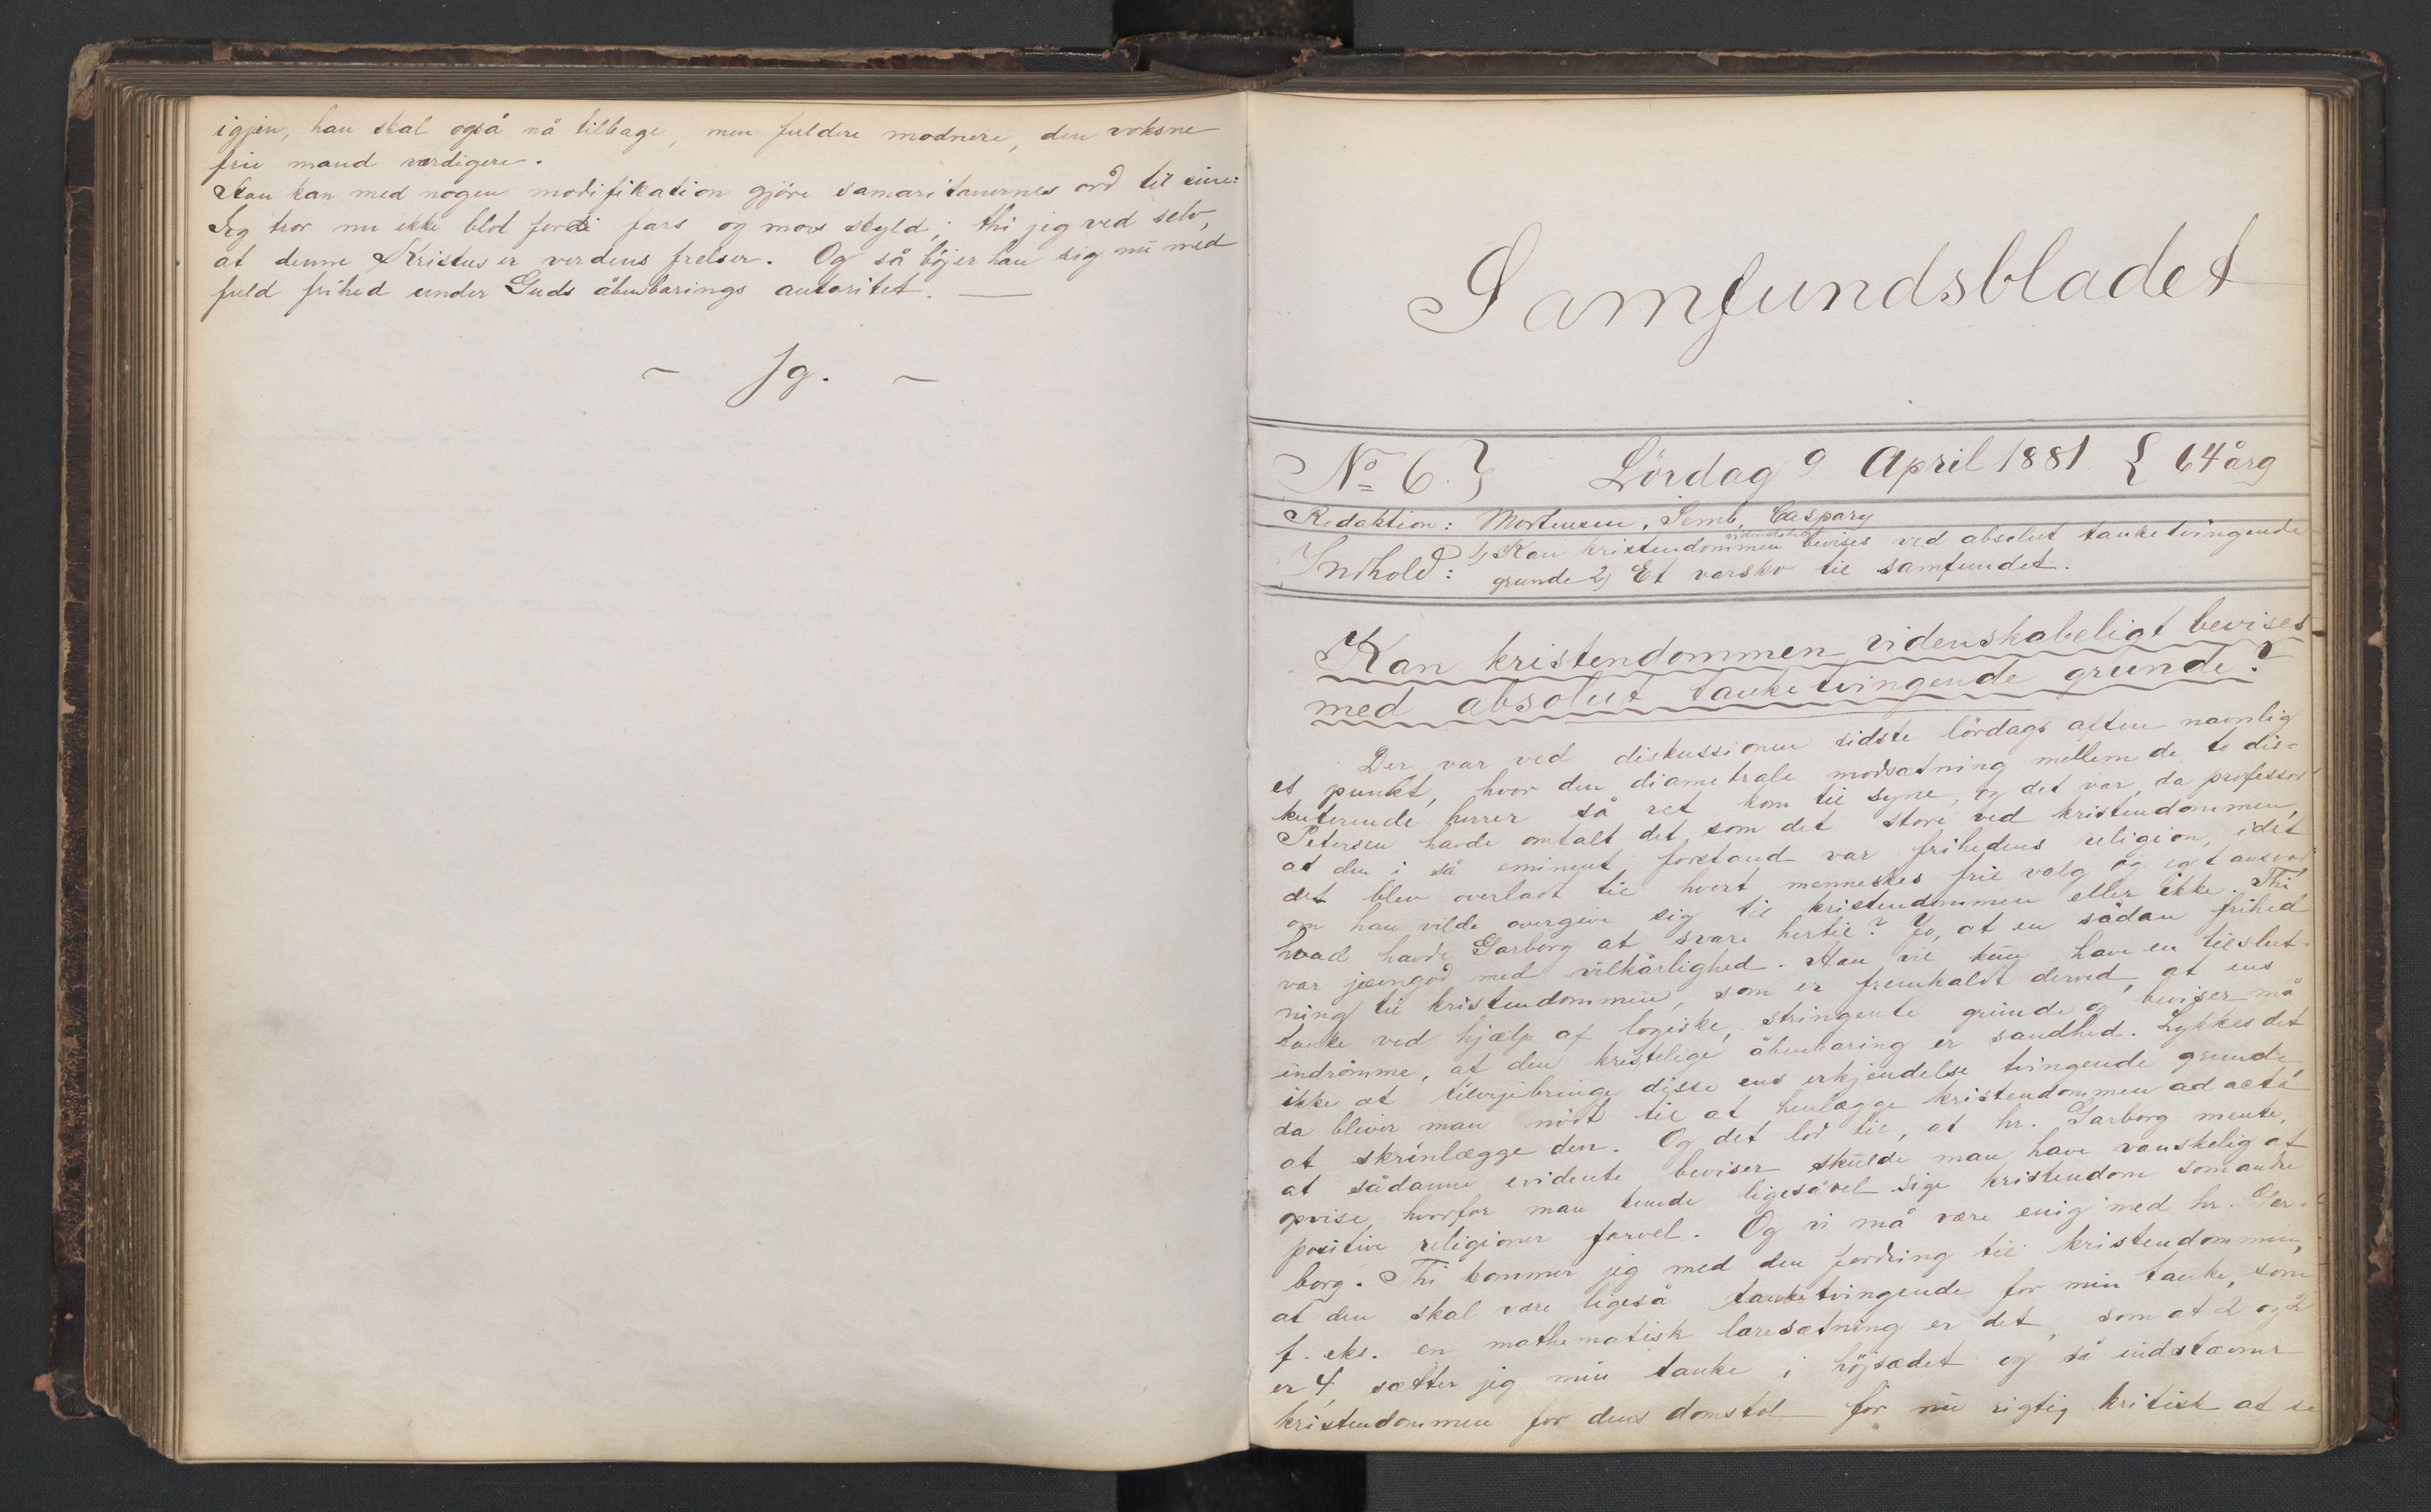 igjen, han skal også nå tilbage, men fuldere modnere, den voksne
frie mand værdigere.
Han kan med nogen modifikation gjöre samaritanernes ord til sine:
Jeg tror nu ikke blot fordi fars og mors skyld; thi jeg ved selv,
at denne Kristus er verdens frelser. Og så böjer han sig nu med
fuld frihed under Guds åbenbarings autoritet. —
– Jg. –
Samfundsbladet
No 6. } Lördag 9 April 1881 { 64 årg
Redaktion: Mortensen, Semb, Caspary
Indhold: 1, Kan kristendommen videnskabeligt bevises ved absolut tanketvingende
grunde 2, Et varsko til samfundet.
Kan kristendommen videnskabeligt bevises
med absolut tanketvingende grunde?
Der var ved diskussionen sidste lördags aften navnlig
et punkt, hvor den diametrale modsætning mellem de to dis=
kuterende herrer så ret kom til syne, og det var, da professor
Petersen havde omtalt det som det store ved kristendommen,
at den i så eminent forstand var frihedens religion, idet
det blev overladt til hvert menneskes frie valg og eget ansvar
om han vilde overgive sig til kristendommen eller ikke. Thi
hvad havde Garborg at svare hertil? Jo, at en sådan frihed
var jevngod med vilkårlighed. Han vil kun have en tilslut-
ning til kristendommen, som er fremkaldt derved, at ens
tanke ved hjælp af logiske, stringente grunde og beviser må
indrömme, at den kristelige åbenbaring er sandhed. Lykkes det
ikke at tilvejebringe disse ens erkjendelse tvingende grunde,
da bliver man nödt til at henlægge kristendommen ad acta
at skrinlægge den. Og det lod til, at hr. Garborg mente,
at sådanne evidente beviser skulde man have vanskelig at
opvise, hvorfor man turde ligesåvel sige kristendom som andre
positive religioner farvel. Og vi må være enig med hr. Gar-
borg. Thi kommer jeg med den fordring til kristendommen,
at den skal være ligeså tanketvingende for min tanke, som
f. eks. en mathematisk læresætning er det, som at 2 og 2
er 4, sætter jeg min tanke i höjsædet og så indstævner
kristendommen for dens domstol for nu rigtig kritisk at se